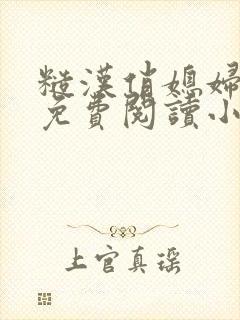 糙漢俏媳婦
免費閱讀小
上官真瑤